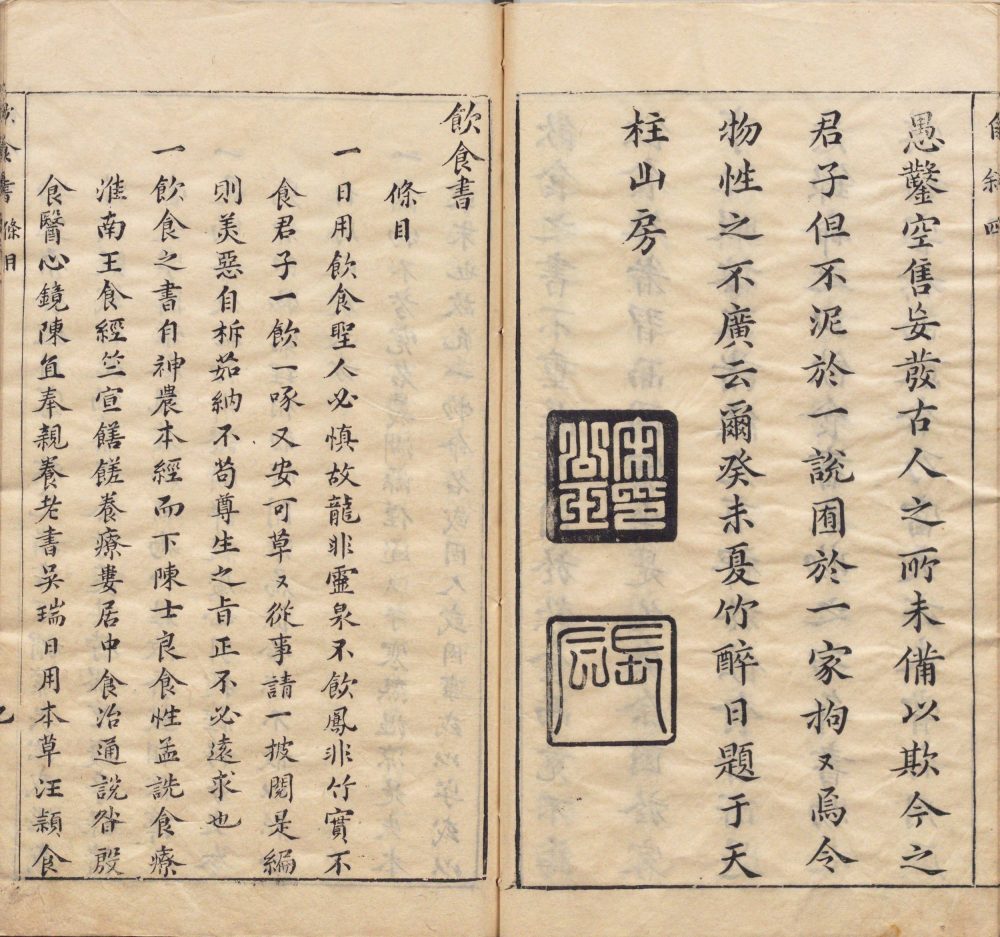 愚鑿空售妄發古人之所未備以欺今之
君子但不泥於一說囿於一家拘〻焉令
物性之不廣云爾癸未夏竹醉日題于天
柱山房
飲食書
條目
一日用飲食聖人必慎故龍非靈泉不飲鳳非竹實不
食君子一飲一啄又安可草〻從事請一披閱是編
則美惡自析茹納不苟尊生之旨正不必遠求也
一飲食之書自神農本經而下陳士良食性孟詵食療
淮南王食經竺宣饍饈養療婁居中食治通說昝殷
食醫心鏡陳直奉親養老書吳瑞日用本草汪穎食
飲食書 條目